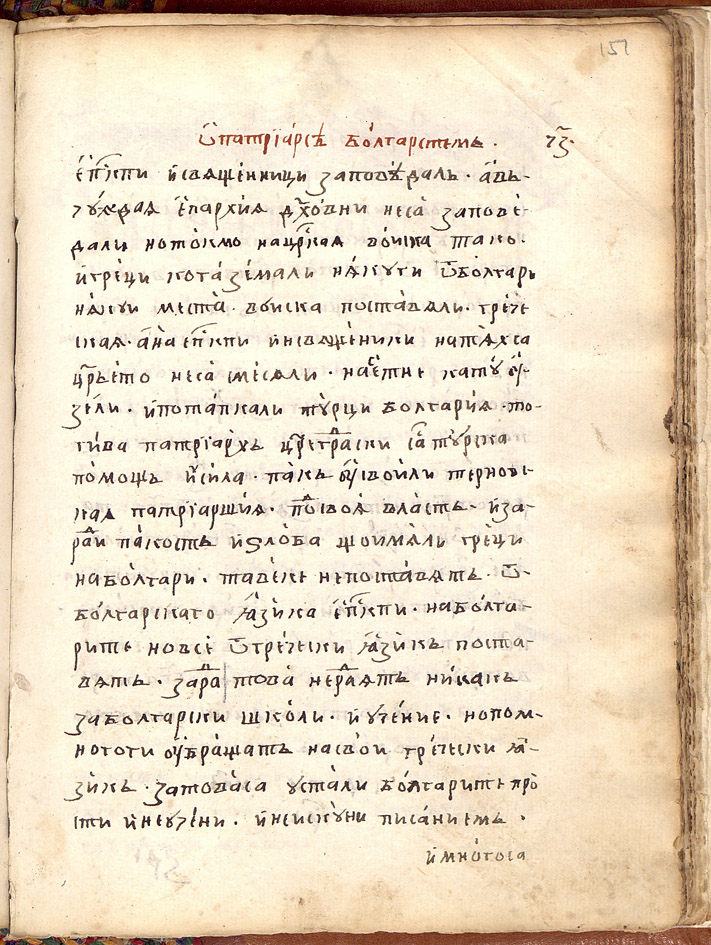 157
Ѿ патрїа́рсѣ бо́лгарстемъ · ч҃з ·
е҆пⷭ҇кпи и҆ свѧще́нници заповѣ́даль · а҆ въ
чꙋ́ждаѧ е҆пархиѧ дꙋ҃хо́вни неса̀ запове́
дали но то́кмо на црⷭ҇каѧ во́иска такъ·
и҆ гре́ци кога̀ зе́мали нѧ́кꙋги ѿ болгаръ
нѧ́кои места̀ · воиска поставѧли · гре́че
ская · а҆ на е҆пⷭ҇кпи и҆ на свѧще́ники на тѧ́хса
цр҃ьето неса̀ меса́ли ·
зе́ли · и҆ пота́пкали тꙋ́рци болга́риѧ · то
гива патрїа́рхъ цр҃егра́дски са тꙋ́рска
по́мощъ и҆ си́ла · пакъ ᲂу҆сво́или тернов
скаѧ патрїаршиѧ · по́дъ своѧ̀ вла́сть · и҆ за
ра́ди пакость и҆ ѕло́ба що и҆мѧ́ли гре́ци
на бо́лгари · та веке не поста́вѧтъ · ѿ
бо́лгарскаго ꙗ҆зи́ка е҆пⷭ҇кпи · на бо́лга
рите но всѐ ѿ гре́чески ꙗ҆зи́къ поста
вѧтъ · зара́ди това̀ не ра́дѧтъ ни́какъ
за болгарски шко́ли · и҆ ᲂуче́ние · но пом
ногоги ᲂу҆браща́тъ на сво́и гре́чески ꙗ҆
зи́къ · за това̀ са ᲂуста́ли бо́лгарите про
сти и҆ неꙋче́ни · и҆ неискꙋ́ни писа́ниемъ ·
и҆ мно́го са